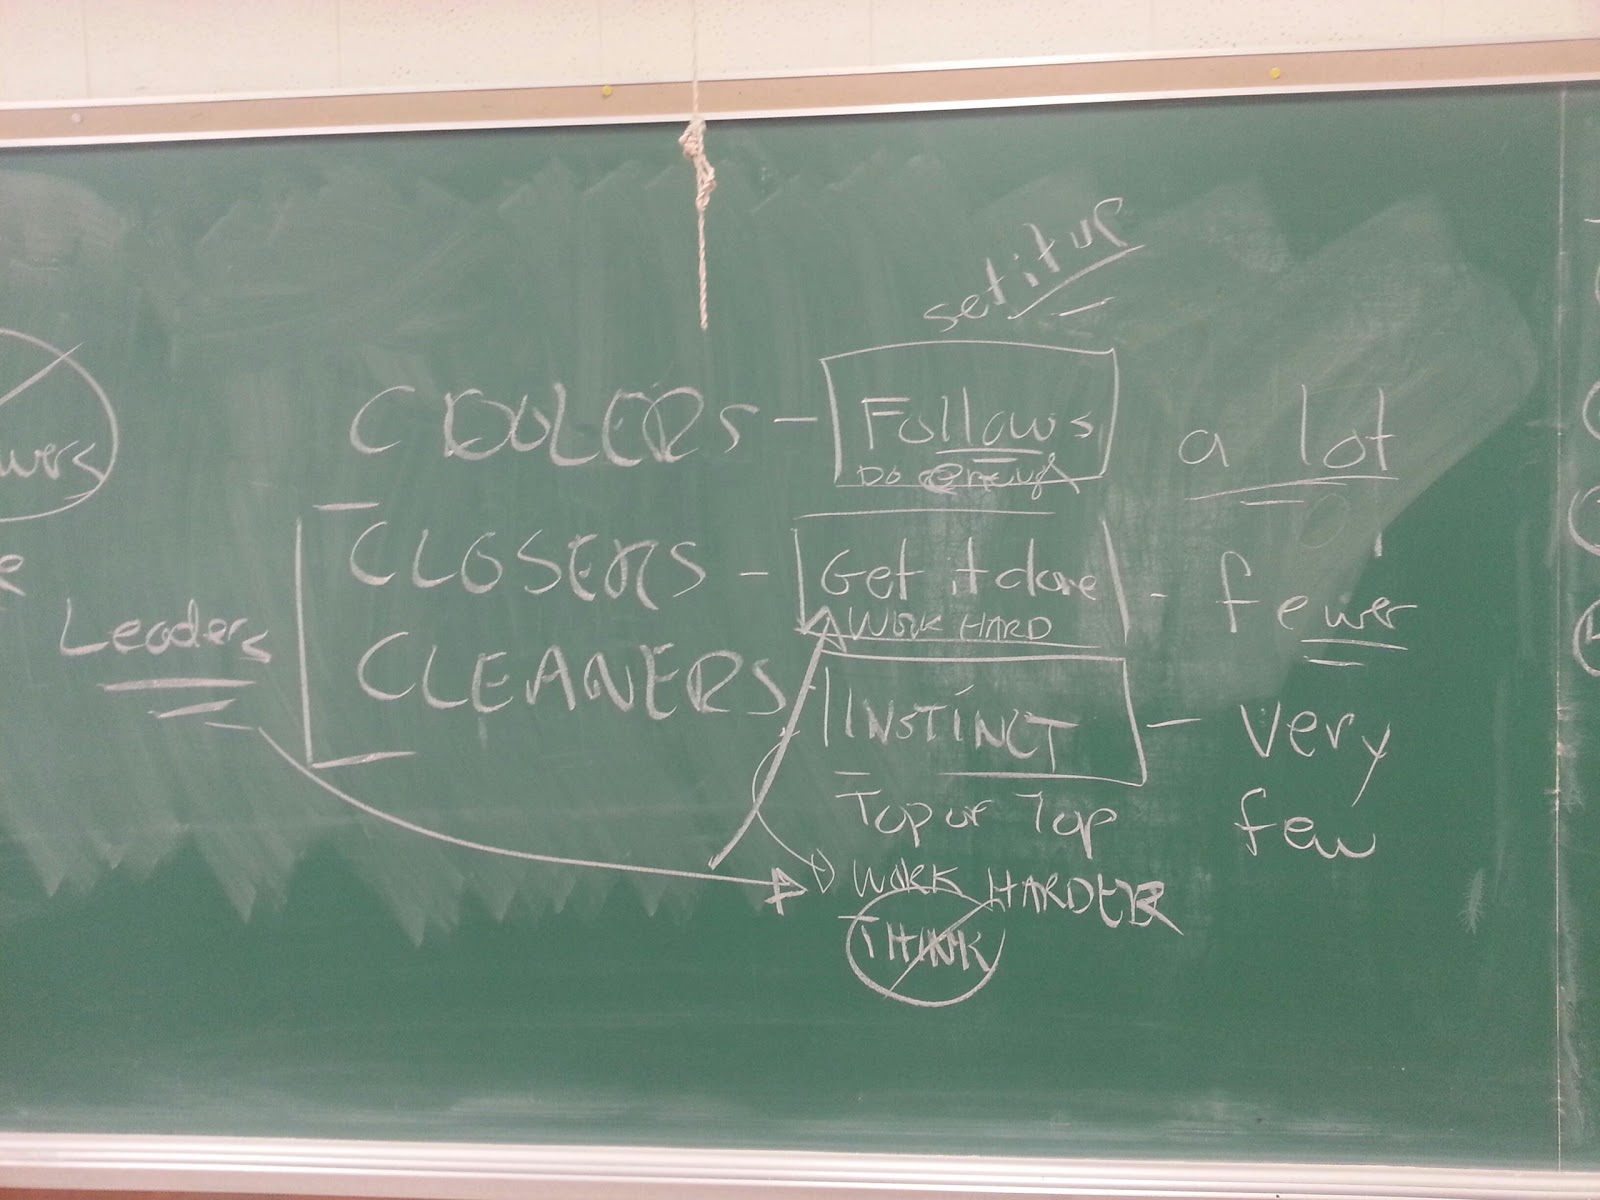 set it up
COOLERS - Follows a lot
Do enough
CLOSERS - Get it done - fewer
WORK HARD
Leaders
CLEANERS INSTINCT - very
Top of Top few
WORK HARDER
THINK